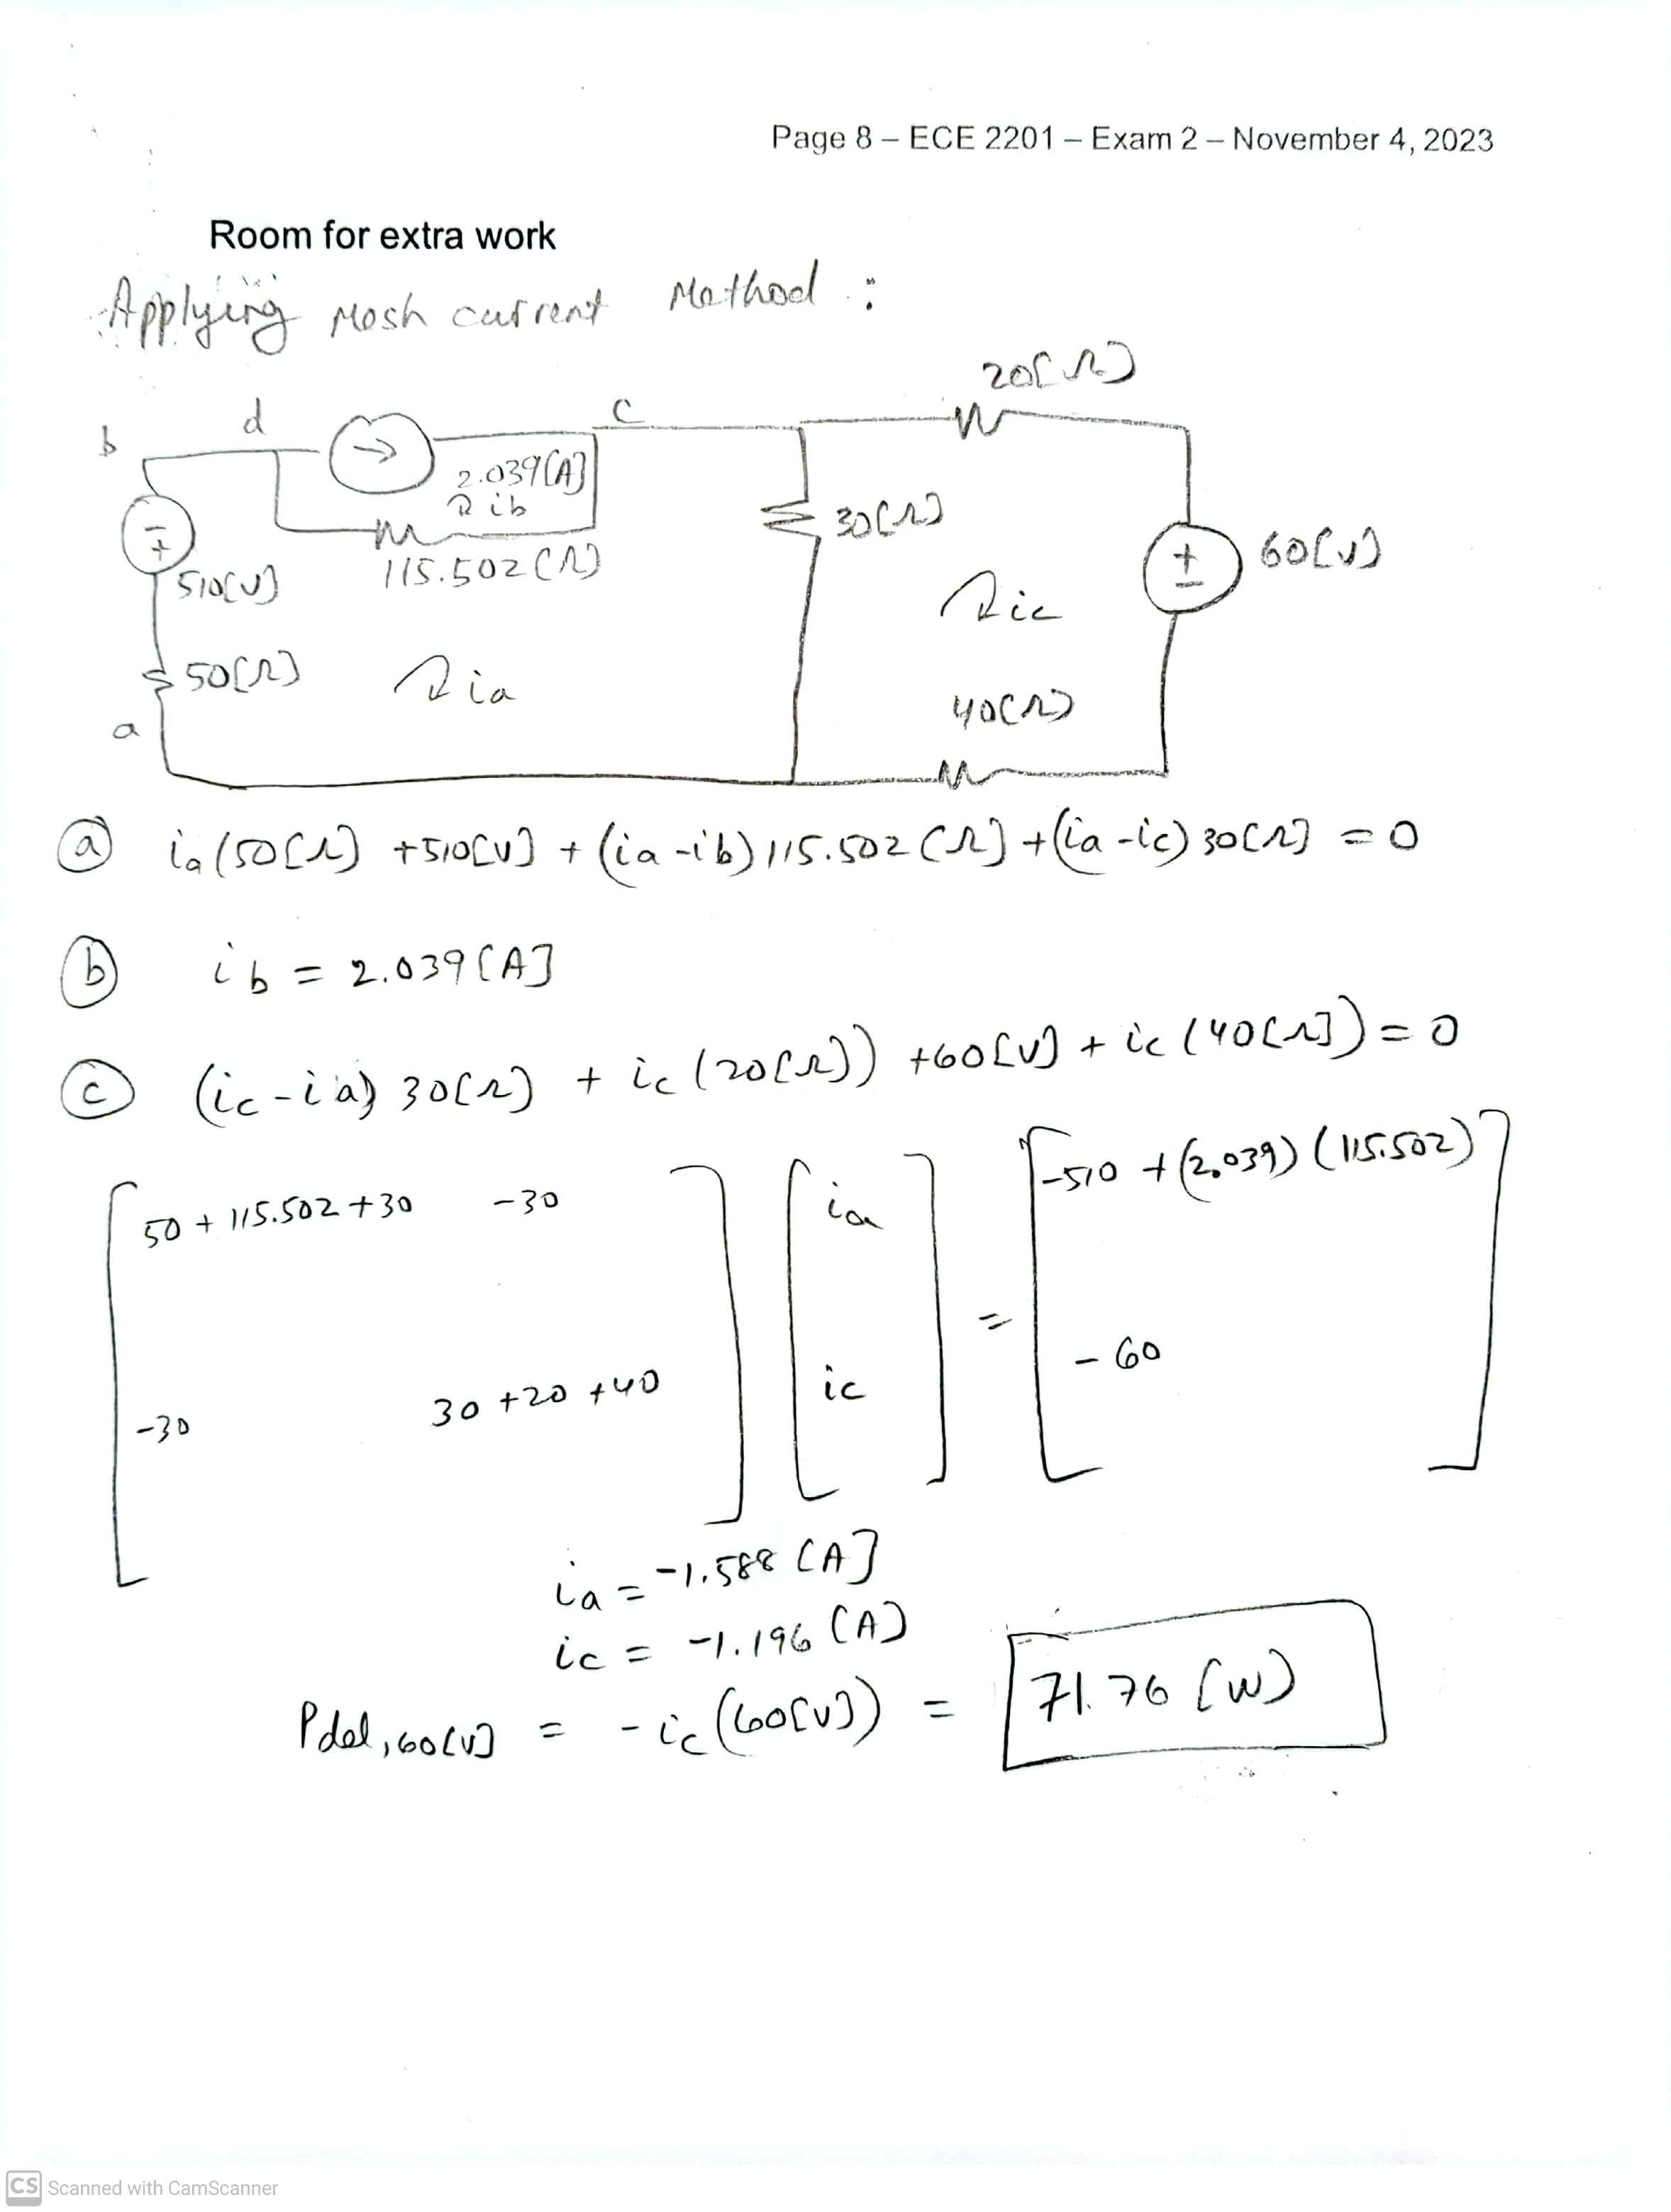 Page 8 – ECE 2201 – Exam 2 – November 4, 2023
Room for extra work
Applying Mesh current Method :
20[Ω]
b d c
2.039[A]
ib
30[Ω]
- +
510[V]
115.502[Ω]
+ -
60[V]
ic
50[Ω]
ia
40[Ω]
a
(a) ia(50[Ω] +510[V] + (ia-ib)115.502[Ω] + (ia-ic)30[Ω] = 0
(b) ib = 2.039[A]
(c) (ic-ia) 30[Ω] + ic(20[Ω]) +60[V] + ic(40[Ω]) = 0
[ 50 + 115.502 + 30 -30 ] [ ia ] = [ -510 + (2.039)(115.502) ]
[ -30 30 +20 +40 ] [ ic ] [ -60 ]
ia = -1.588 [A]
ic = -1.196 [A]
Pdel,60[V] = -ic(60[V]) = 71.76 [W]
CS Scanned with CamScanner